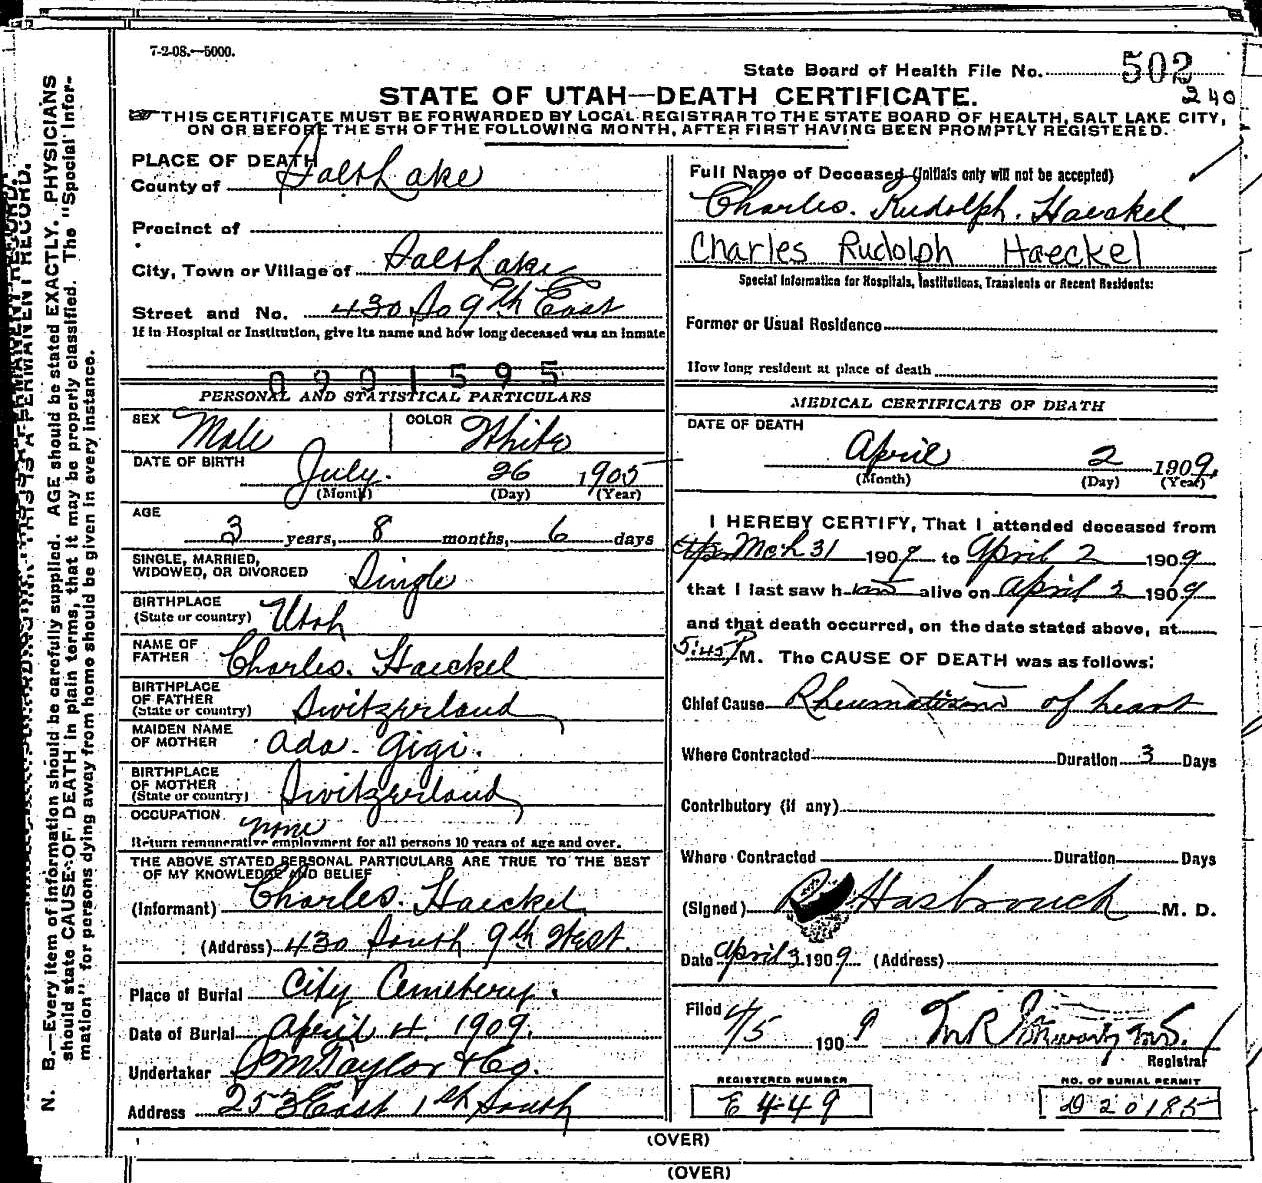 7-2-08.—5000.
State Board of Health File No. 502
240
STATE OF UTAH—DEATH CERTIFICATE.
THIS CERTIFICATE MUST BE FORWARDED BY LOCAL REGISTRAR TO THE STATE BOARD OF HEALTH, SALT LAKE CITY,
ON OR BEFORE THE 5TH OF THE FOLLOWING MONTH, AFTER FIRST HAVING BEEN PROMPTLY REGISTERED.
PLACE OF DEATH
County of Salt Lake
Precinct of
City, Town or Village of Salt Lake
Street and No. 430 So 9th East
If in Hospital or Institution, give its name and how long deceased was an inmate
0901595
PERSONAL AND STATISTICAL PARTICULARS
SEX Male COLOR White
DATE OF BIRTH July 26 1905
(Month) (Day) (Year)
AGE
3 years, 8 months, 6 days
SINGLE, MARRIED,
WIDOWED, OR DIVORCED Single
BIRTHPLACE
(State or country) Utah
NAME OF
FATHER Charles. Haeckel
BIRTHPLACE
OF FATHER
(State or country) Switzerland
MAIDEN NAME
OF MOTHER Ada. Gigi.
BIRTHPLACE
OF MOTHER
(State or country) Switzerland
OCCUPATION none
Return remunerative employment for all persons 10 years of age and over.
THE ABOVE STATED PERSONAL PARTICULARS ARE TRUE TO THE BEST
OF MY KNOWLEDGE AND BELIEF
(Informant) Charles. Haeckel
(Address) 430 South 9th West.
Place of Burial City Cemetery.
Date of Burial April 4. 1909.
Undertaker S M Taylor & Co.
Address 253 East 1st South
Full Name of Deceased (Initials only will not be accepted)
Charles. Rudolph. Haeckel
Charles Rudolph Haeckel
Special Information for Hospitals, Institutions, Transients or Recent Residents:
Former or Usual Residence
How long resident at place of death
MEDICAL CERTIFICATE OF DEATH
DATE OF DEATH
April 2 1909
(Month) (Day) (Year)
I HEREBY CERTIFY, That I attended deceased from
Mch 31 1909 to April 2 1909
that I last saw him alive on April 2 1909
and that death occurred, on the date stated above, at
5:45 P M. The CAUSE OF DEATH was as follows:
Chief Cause Rheumatism of heart
Where Contracted Duration 3 Days
Contributory (if any)
Where Contracted Duration Days
(Signed) Hasbrouck M. D.
Date April 3 1909 (Address)
Filed 4/5 1909
Registrar
REGISTERED NUMBER
E 449
NO. OF BURIAL PERMIT
D20185
(OVER)
(OVER)
N. B.—Every item of information should be carefully supplied. AGE should be stated EXACTLY. PHYSICIANS
should state CAUSE OF DEATH in plain terms, that it may be properly classified. The "Special Infor-
mation" for persons dying away from home should be given in every instance.